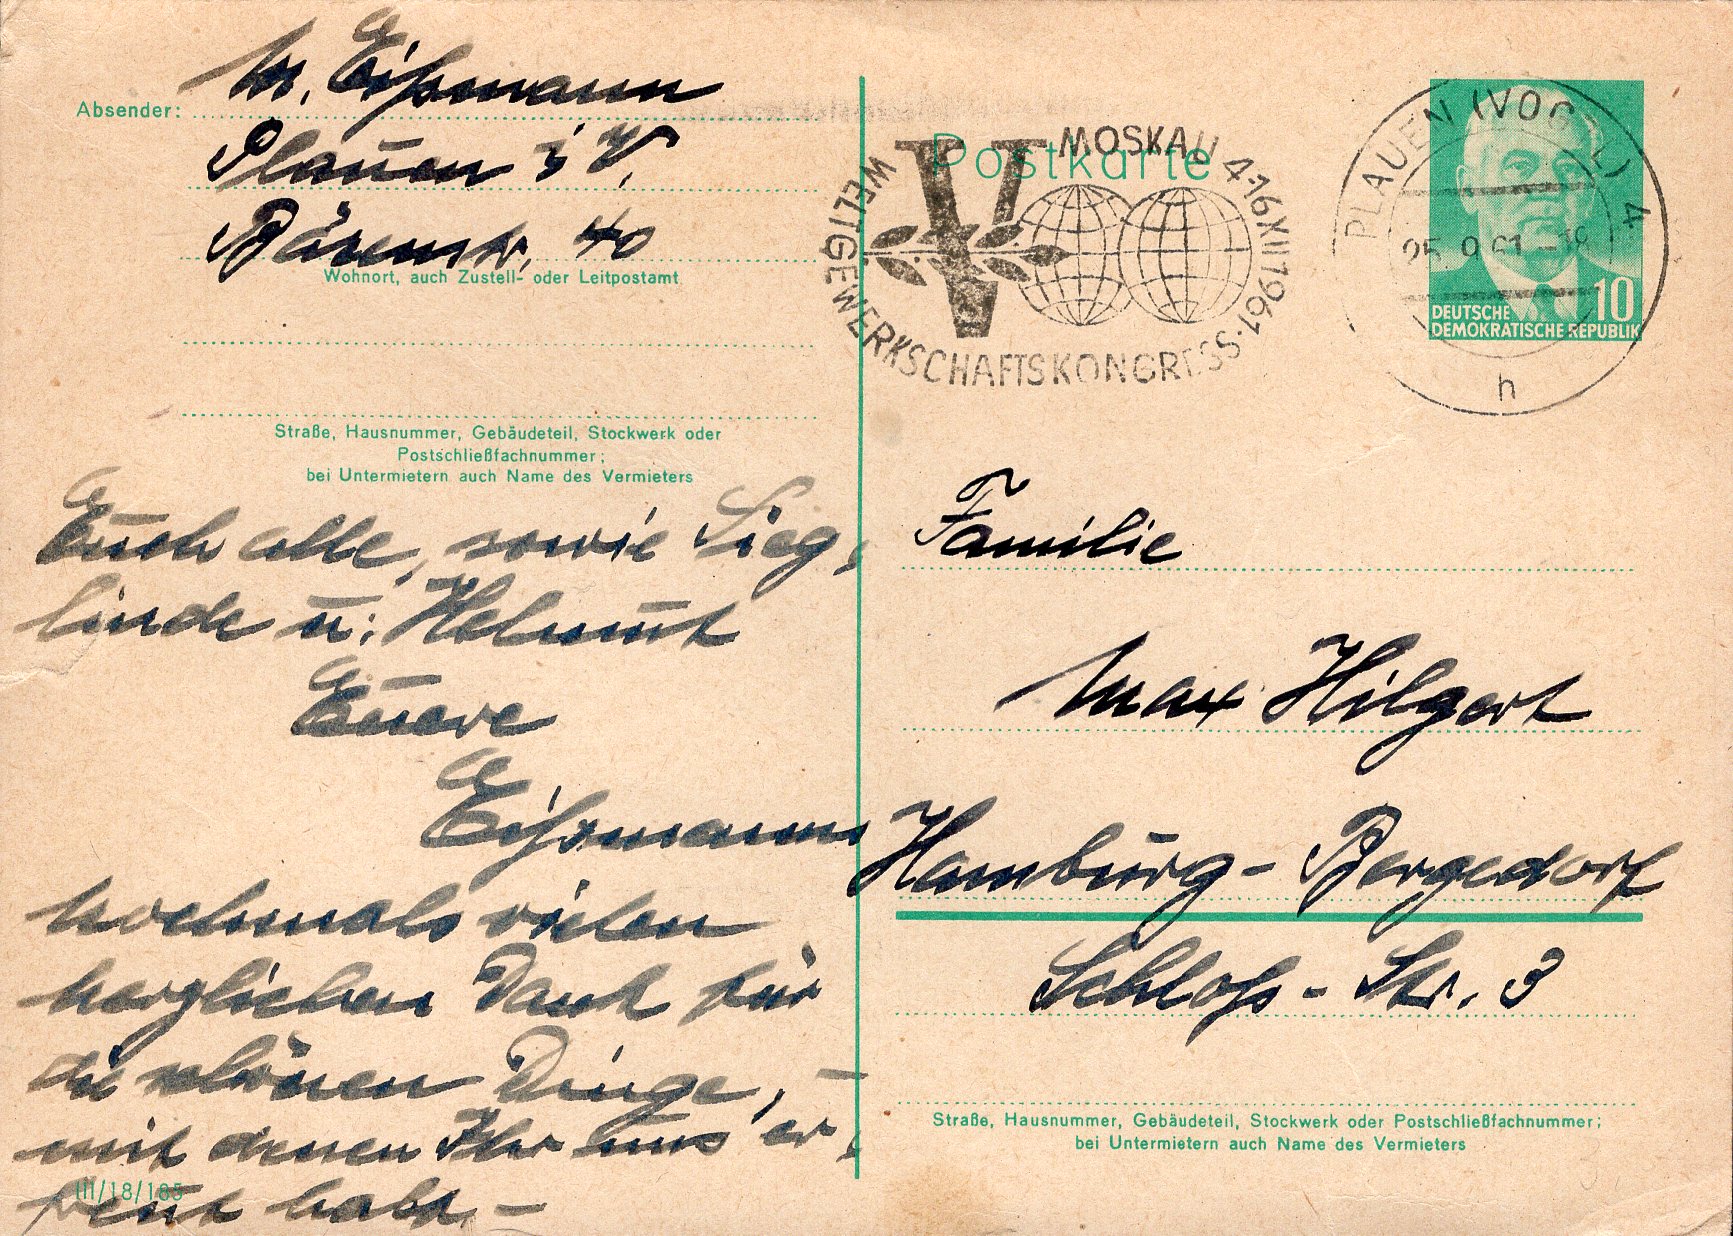 Absender:
M. Eißmann
Plauen i V.
Bärenstr. 40
Wohnort, auch Zustell- oder Leitpostamt
Straße, Hausnummer, Gebäudeteil, Stockwerk oder
Postschließfachnummer;
bei Untermietern auch Name des Vermieters
Euch alle, sowie Sieg-
linde u. Helmut
Euere
Eißmanns
Nochmals vielen
herzlichen Dank für
die schönen Dinge, –
mit denen Ihr uns er-
freut habt. –
III/18/185
Postkarte
MOSKAU 4.-16.XII.1961.
WELTGEWERKSCHAFTSKONGRESS
V
PLAUEN (VOGTL) 4
25.9.61 -18
h
10
DEUTSCHE
DEMOKRATISCHE REPUBLIK
Familie
Max Hilgert
Hamburg - Bergedorf
Schloß - Str. 3
Straße, Hausnummer, Gebäudeteil, Stockwerk oder Postschließfachnummer;
bei Untermietern auch Name des Vermieters